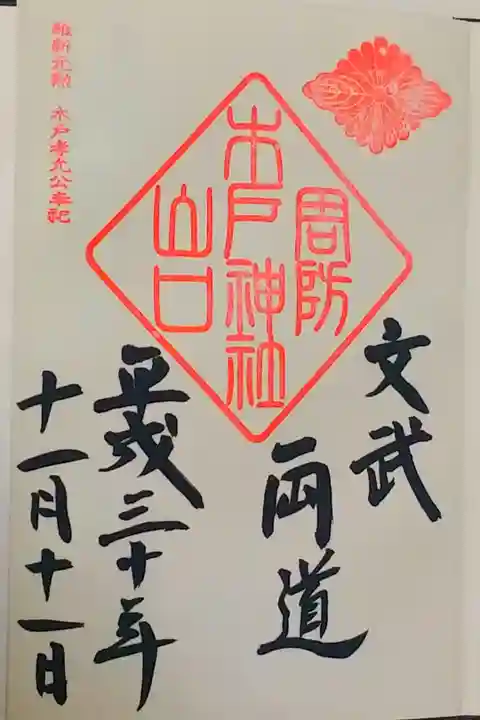 文武
両道
周防
木戸神社
山口
平成三十年
十一月十一日
維新元勲 木戸孝允公奉祀